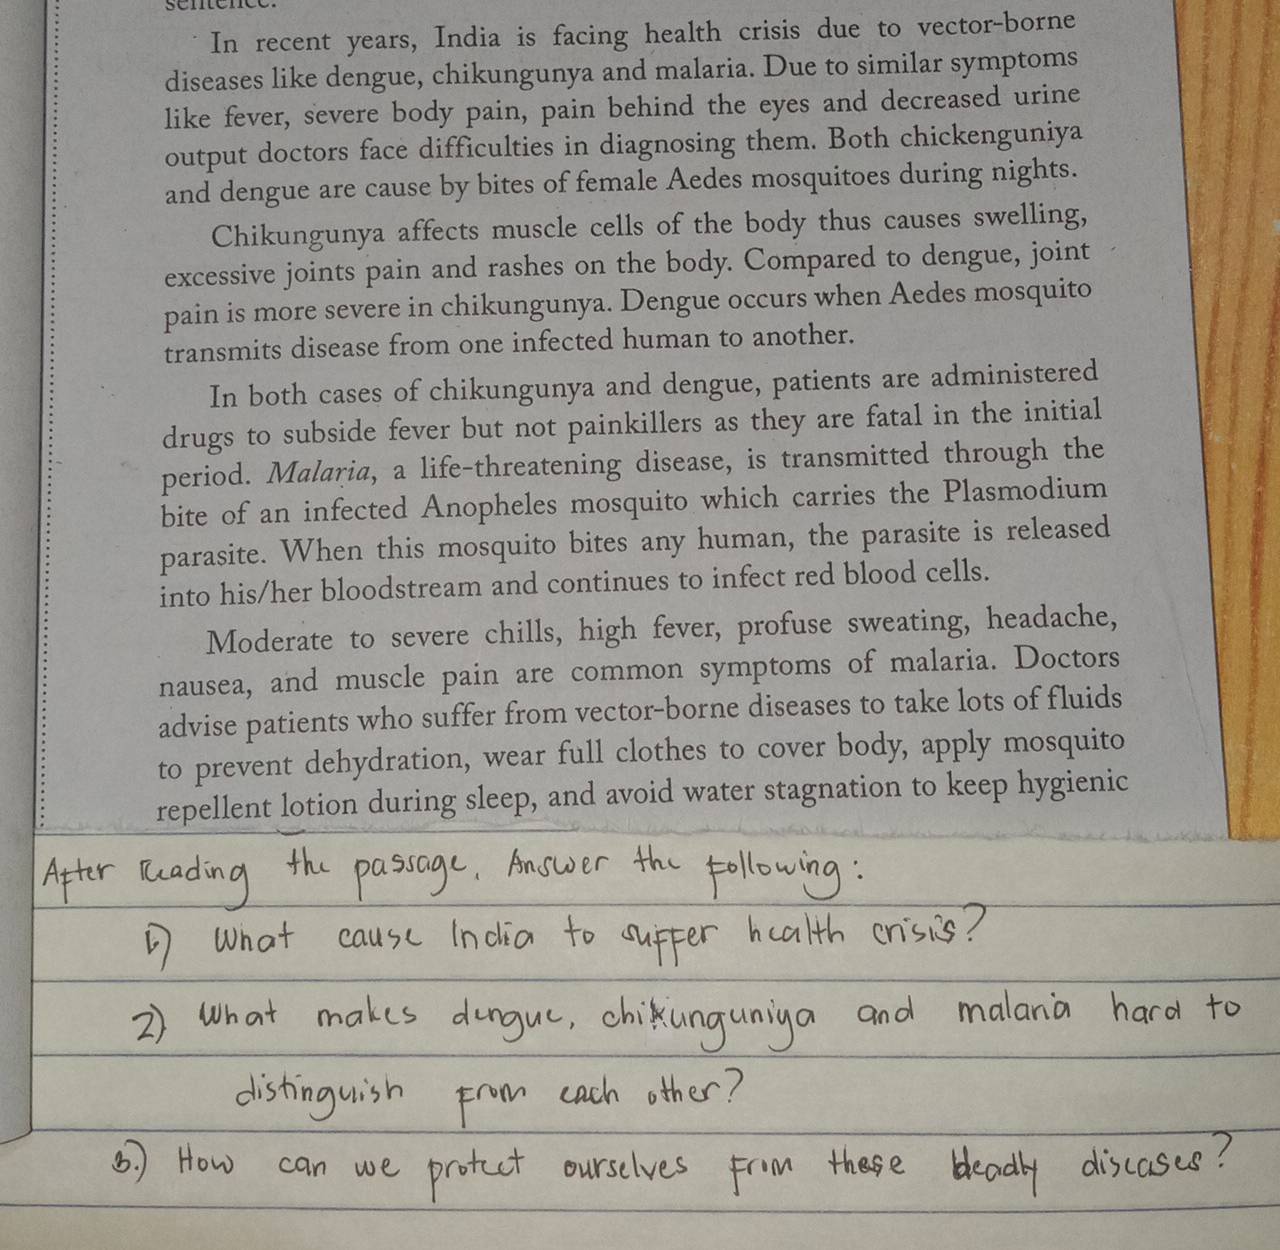 sentence.
In recent years, India is facing health crisis due to vector-borne
diseases like dengue, chikungunya and malaria. Due to similar symptoms
like fever, severe body pain, pain behind the eyes and decreased urine
output doctors face difficulties in diagnosing them. Both chickenguniya
and dengue are cause by bites of female Aedes mosquitoes during nights.
Chikungunya affects muscle cells of the body thus causes swelling,
excessive joints pain and rashes on the body. Compared to dengue, joint
pain is more severe in chikungunya. Dengue occurs when Aedes mosquito
transmits disease from one infected human to another.
In both cases of chikungunya and dengue, patients are administered
drugs to subside fever but not painkillers as they are fatal in the initial
period. Malaria, a life-threatening disease, is transmitted through the
bite of an infected Anopheles mosquito which carries the Plasmodium
parasite. When this mosquito bites any human, the parasite is released
into his/her bloodstream and continues to infect red blood cells.
Moderate to severe chills, high fever, profuse sweating, headache,
nausea, and muscle pain are common symptoms of malaria. Doctors
advise patients who suffer from vector-borne diseases to take lots of fluids
to prevent dehydration, wear full clothes to cover body, apply mosquito
repellent lotion during sleep, and avoid water stagnation to keep hygienic
After reading the passage, Answer the following:
1) What cause India to suffer health crisis?
2) What makes dengue, chikunguniya and malaria hard to
distinguish from each other?
3.) How can we protect ourselves from these deadly diseases?